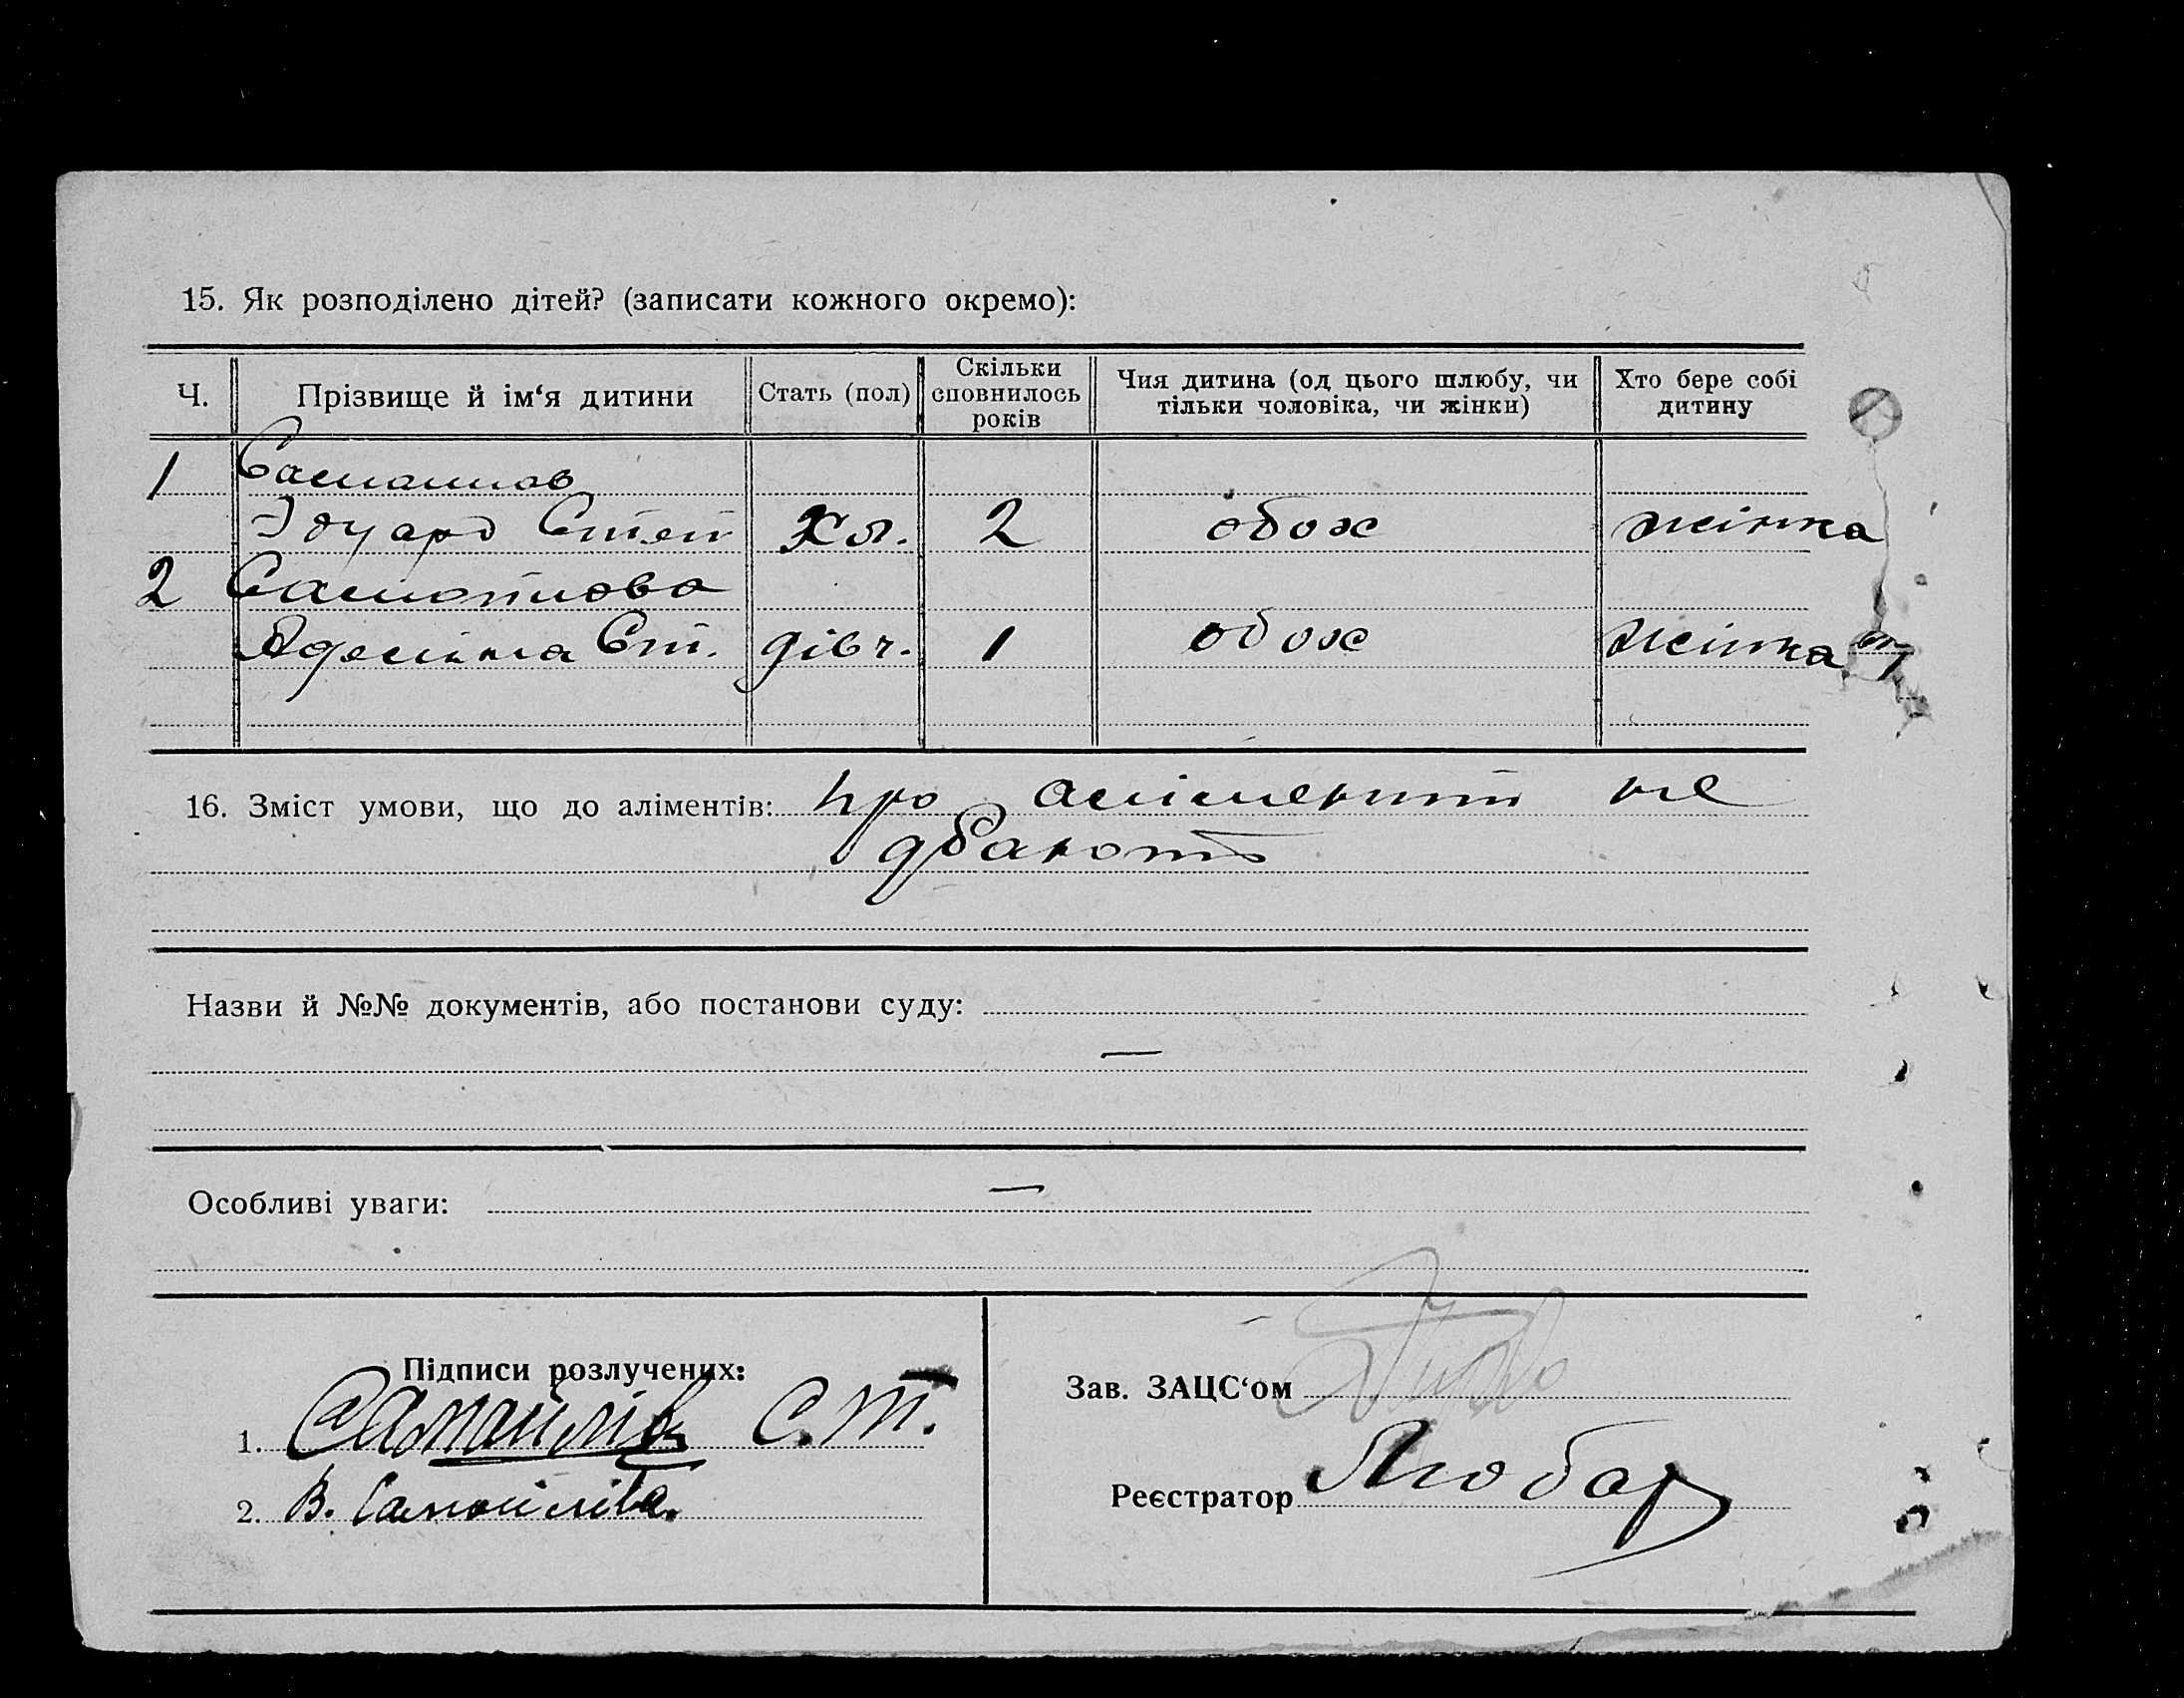 15. Як розподілено дітей? (записати кожного окремо):
Ч. Прізвище й ім‘я дитини Стать (пол) Скільки сповнилось років Чия дитина (од цього шлюбу, чи тільки чоловіка, чи жінки) Хто бере собі дитину
1 Самойлов
Едуард Степ Хл. 2 обох жінка
2 Самойлова
Аделіна Ст. дівч. 1 обох жінка
16. Зміст умови, що до аліментів: про аліменти не
дбають
Назви й №№ документів, або постанови суду:
—
Особливі уваги: —
Підписи розлучених:
1. Самойлів С.Т.
2. В. Самойліва.
Зав. ЗАЦС‘ом
Реєстратор Любар